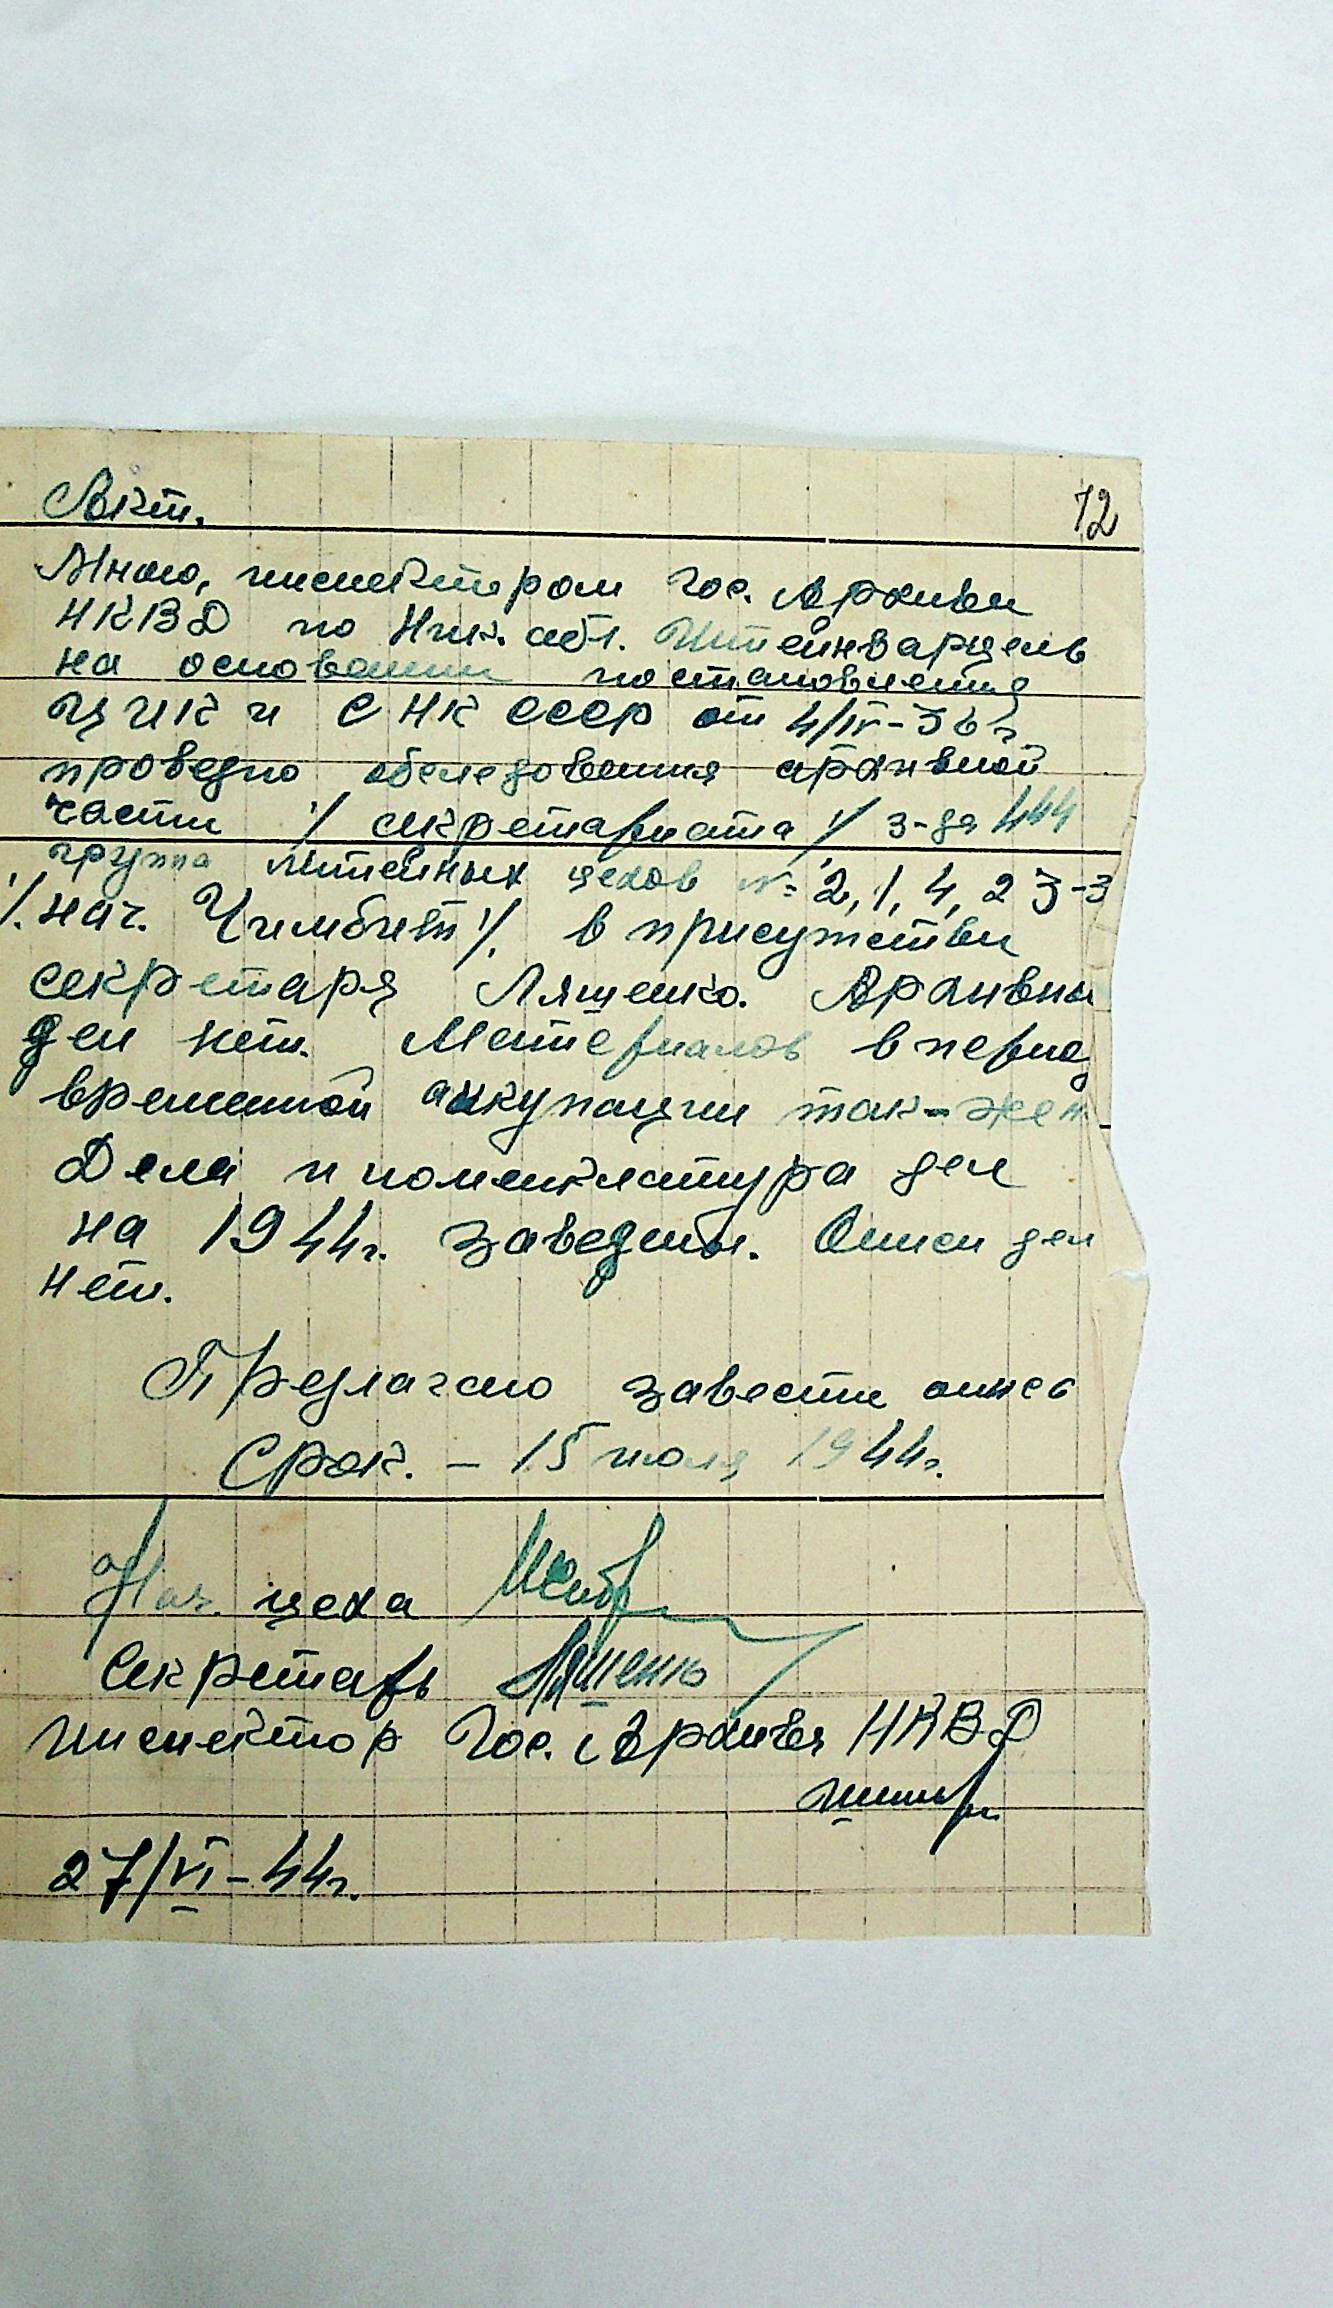 Акт. 12
Мною, инспектором Гос. Архива
НКВД по Ник. обл. Штейнварцель
на основании постановления
ЦИК и СНК СССР от 4/IV-36 г
проведно обследования архивной
части ⁒ секретариата ⁒ з-да 444
группа литейных цехов №= 2, 1, 4, 2 3-3
⁒. нач. Чимбит ⁒. в присутствии
секретаря Ляшенко. Архивны
дел нет. Материалов в период
временной аккупации так-же н
Дела и номенклатура дел
на 1944г. заведены. Описи дел
нет.
Предлагаю завести опись
Срок. – 15 июля 1944г.
Нач. цеха
Секретарь Ляшенко
Инспектор Гос. Архива НКВД
27/VI-44г.